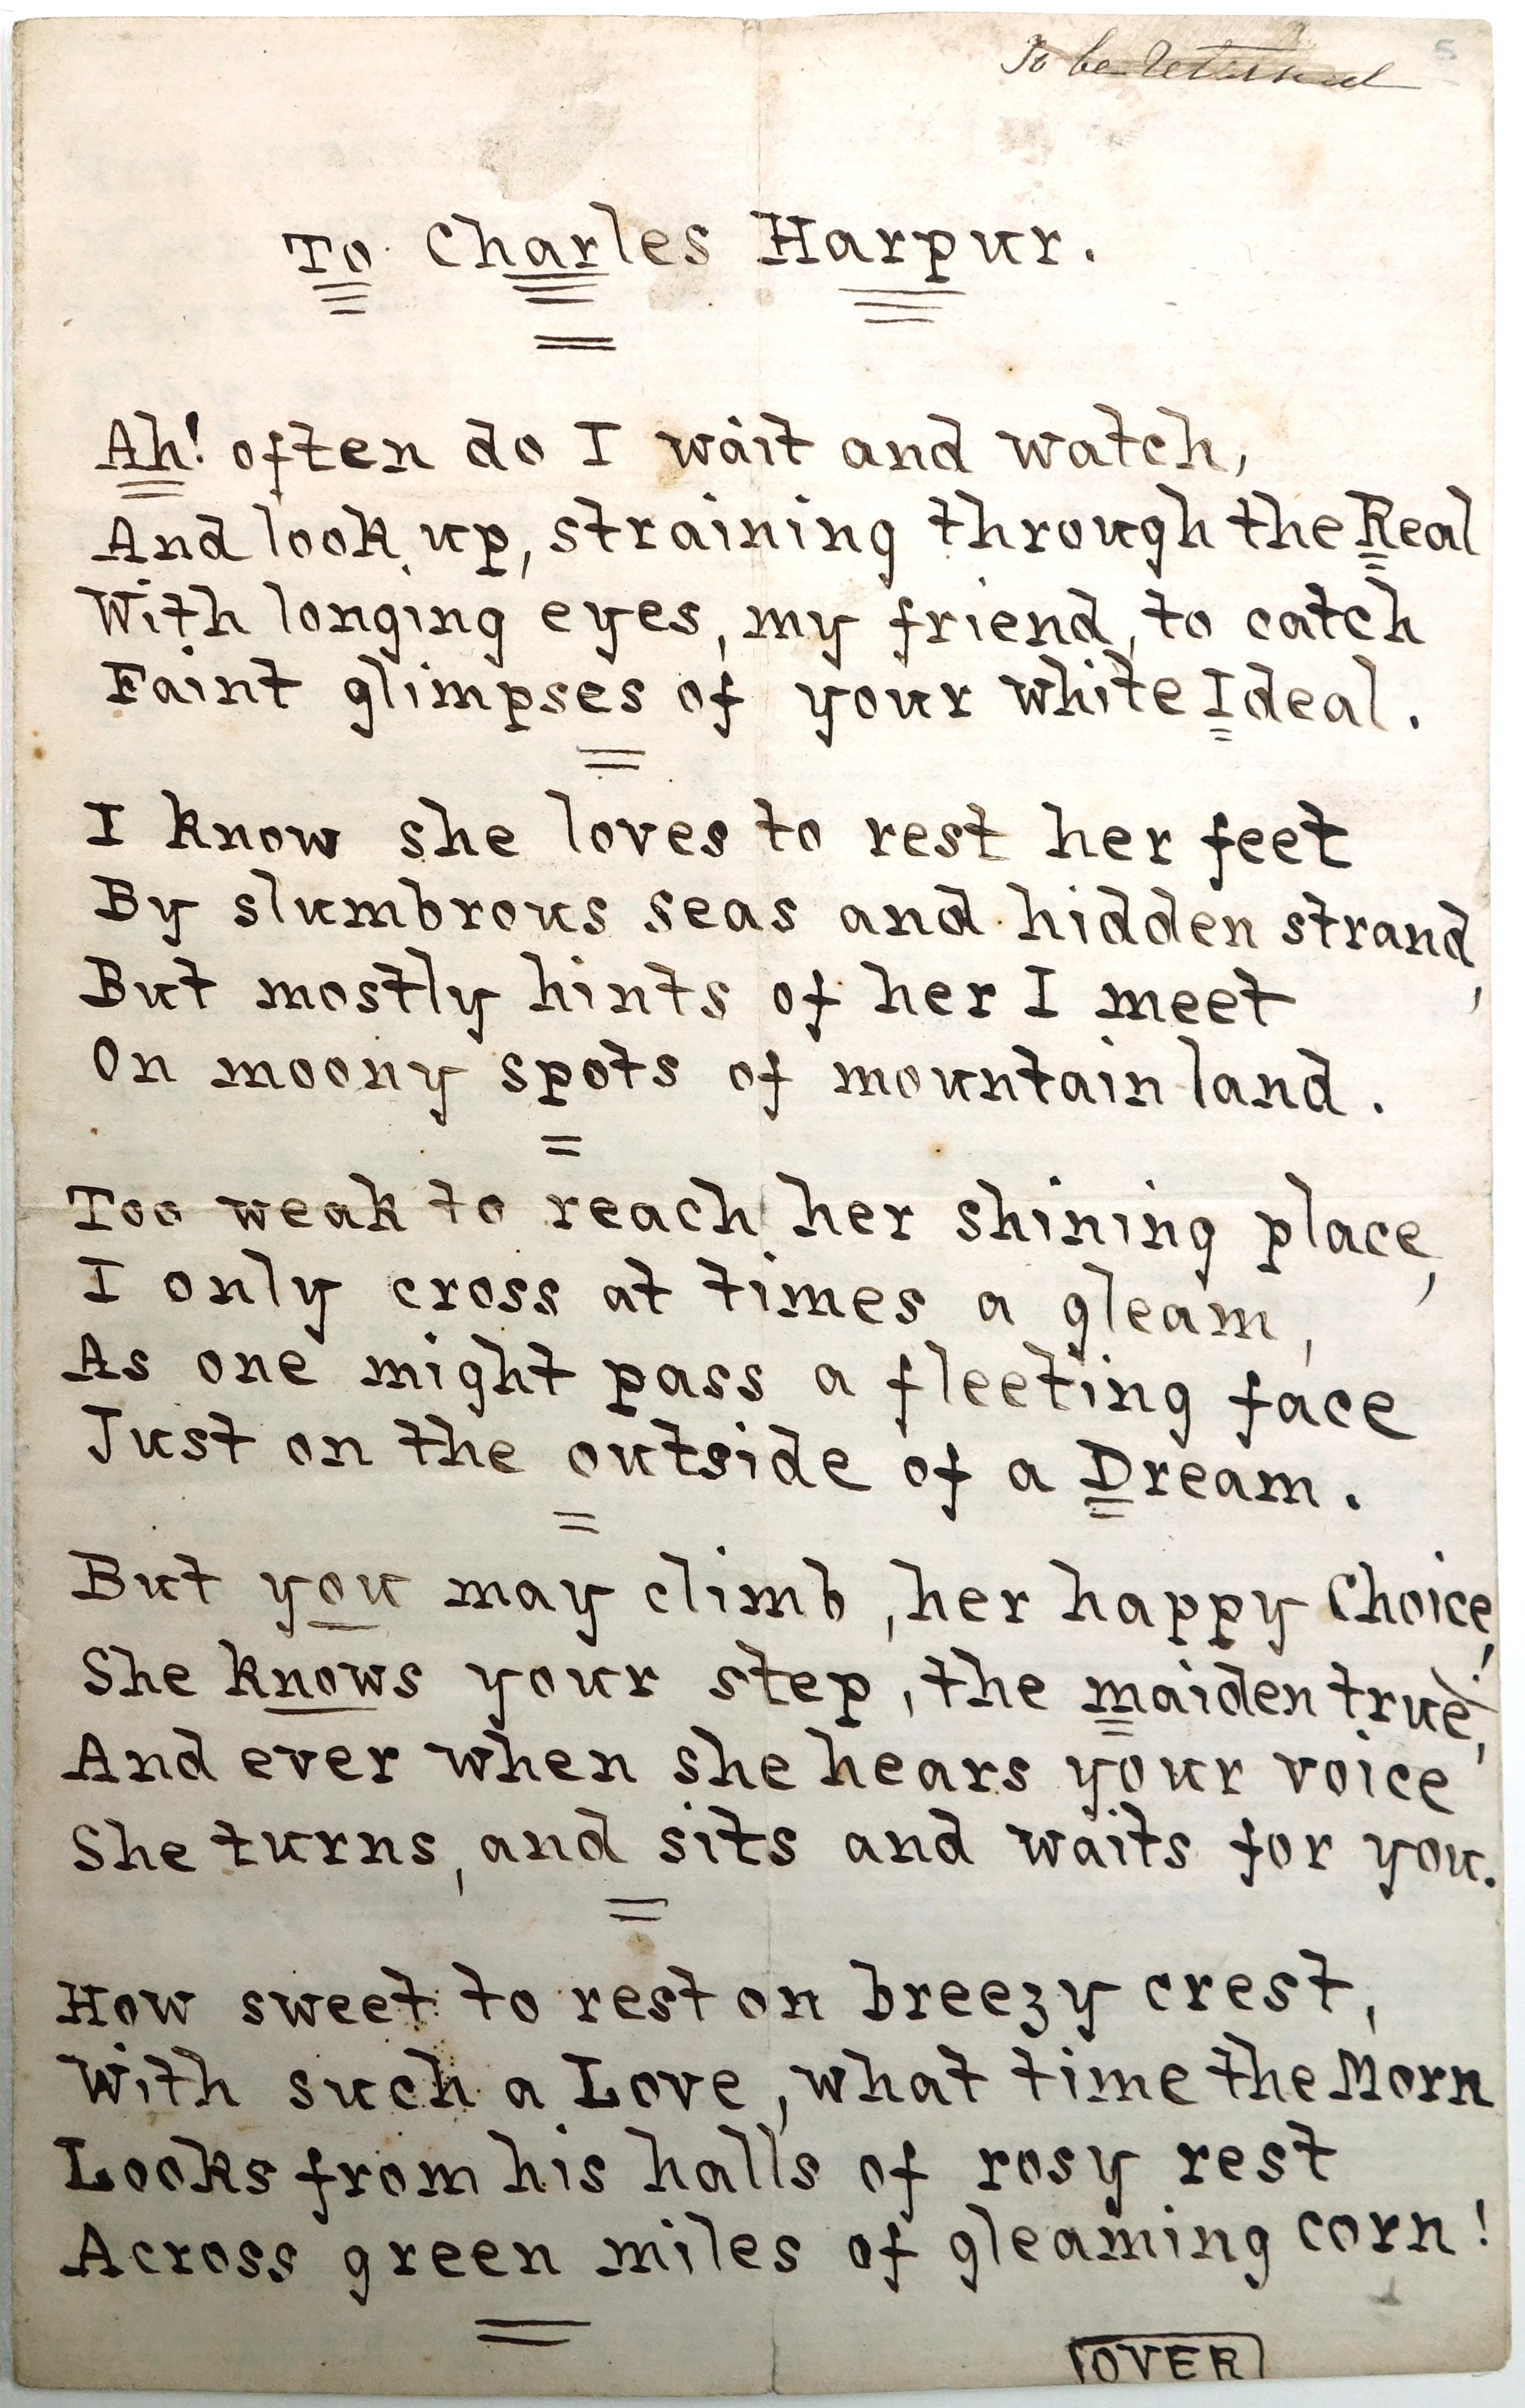 To be returned
5
To Charles Harpur.
Ah! often do I wait and watch,
And look up, straining through the Real
With longing eyes, my friend, to catch
Faint glimpses of your white Ideal.
I know she loves to rest her feet
By slumbrous seas and hidden strand,
But mostly hints of her I meet
On moony spots of mountain land.
Too weak to reach her shining place,
I only cross at times a gleam,
As one might pass a fleeting face
Just on the outside of a Dream.
But you may climb, her happy Choice!
She knows your step, the maiden true,
And ever when she hears your voice
She turns, and sits and waits for you.
How sweet to rest on breezy crest,
With such a Love, what time the Morn
Looks from his halls of rosy rest
Across green miles of gleaming corn!
OVER